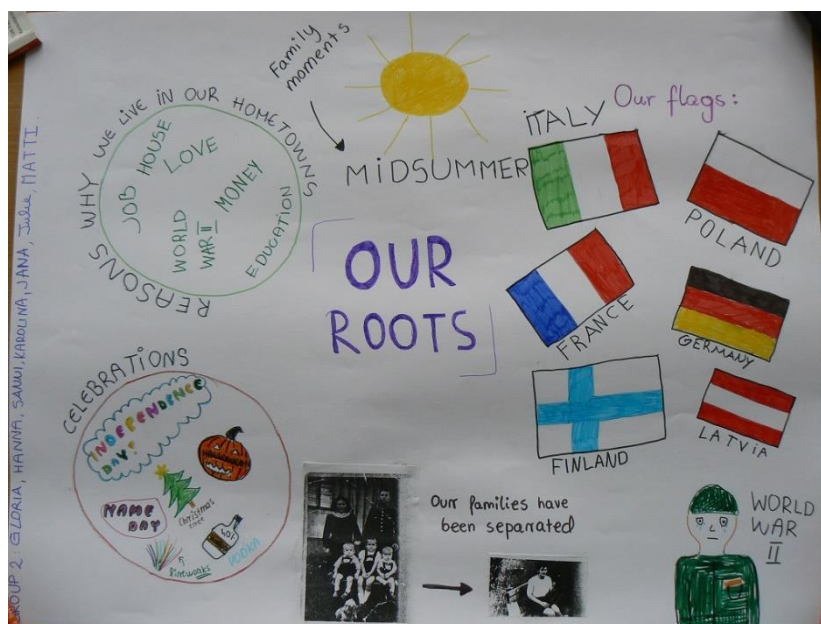 GROUP 2: GLORIA, HANNA, SANNI, KAROLINA, JANA, Julie, MATTI.
REASONS WHY WE LIVE IN OUR HOMETOWNS
JOB
HOUSE
LOVE
WORLD
WAR II
MONEY
EDUCATION
Family
moments
MIDSUMMER
OUR
ROOTS
Our flags:
ITALY
POLAND
FRANCE
GERMANY
FINLAND
LATVIA
CELEBRATIONS
INDEPENDENCE
DAY!
NAME
DAY
Christmas
tree
fireworks
40%
VODKA
Our families have
been separated
WORLD
WAR
II